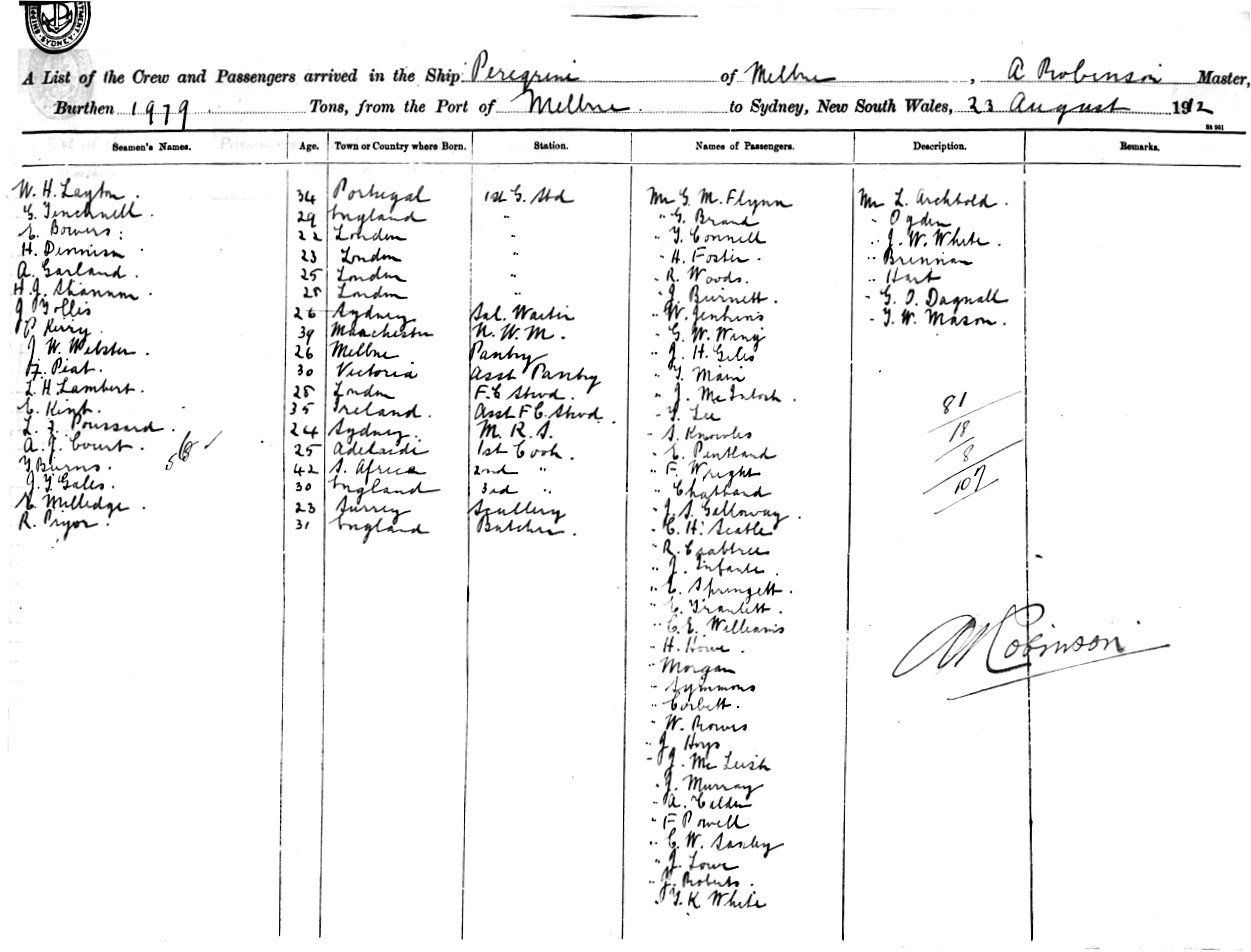 SYDNEY
A List of the Crew and Passengers arrived in the Ship Peregrine of Melbne, A Robinson Master,
Burthen 1979 Tons, from the Port of Melbne to Sydney, New South Wales, 23 August 1912
St 951
Seamen's Names. Age. Town or Country where Born. Station. Names of Passengers. Description. Remarks.
W. H. Layton. 34 Portugal 1st G. Std Mr G. M. Flynn Mr L. Archbold.
29 England " " G. Brand " Ogden
E. Bowers: 22 London " " T. Connell " J. W. White.
H. Dennison 23 London " " H. Foster. " Brennan
A. Garland. 25 London " " R. Woods. " Hart
H. J. Shannon. 28 London " " J. Burnett. " G. O. Dagnall
J. Follis 26 Sydney Sal. Waiter " W. Jenkins " T. W. Mason.
P. Kerry. 39 Manchester N. W. M. " G. W. Wing
J. W. Webster. 26 Melbne Pantry " J. H. Giles
F. Peat. 30 Victoria Asst Pantry " T. Main
L. H. Lambert. 28 London F.C Stwd. " J. McIntosh. 81
E. King. 35 Ireland. Asst F.C. Stwd. " T. Lee
L. J. Poussard. 24 Sydney. M. R. S. " S. Knowles 18
A. J. Court. 25 Adelaide 1st Cook. " E. Pentland 8
T. Burns. 42 S. Africa 2nd " " F. Wright
J. T. Gales. 30 England 3rd " " Chabbard 107
E. Milledge. 23 Surrey Scullery " J. S. Galloway.
R. Pryor. 31 England Butcher. " C. H. Seatle
" R. Crabtree
" J. Infante.
" E. Springett.
" E. Tranlett.
" C. E. Williams
" H. Howe.
" Morgan
" Symmons
" Corbett.
" W. Rowes
" J. Hoys
" J. McLeish
" J. Murray
" A. Calder
" F Powell
" C. W. Saxby
" J. Lowe
" J. Roberts.
" T. K White
A Robinson